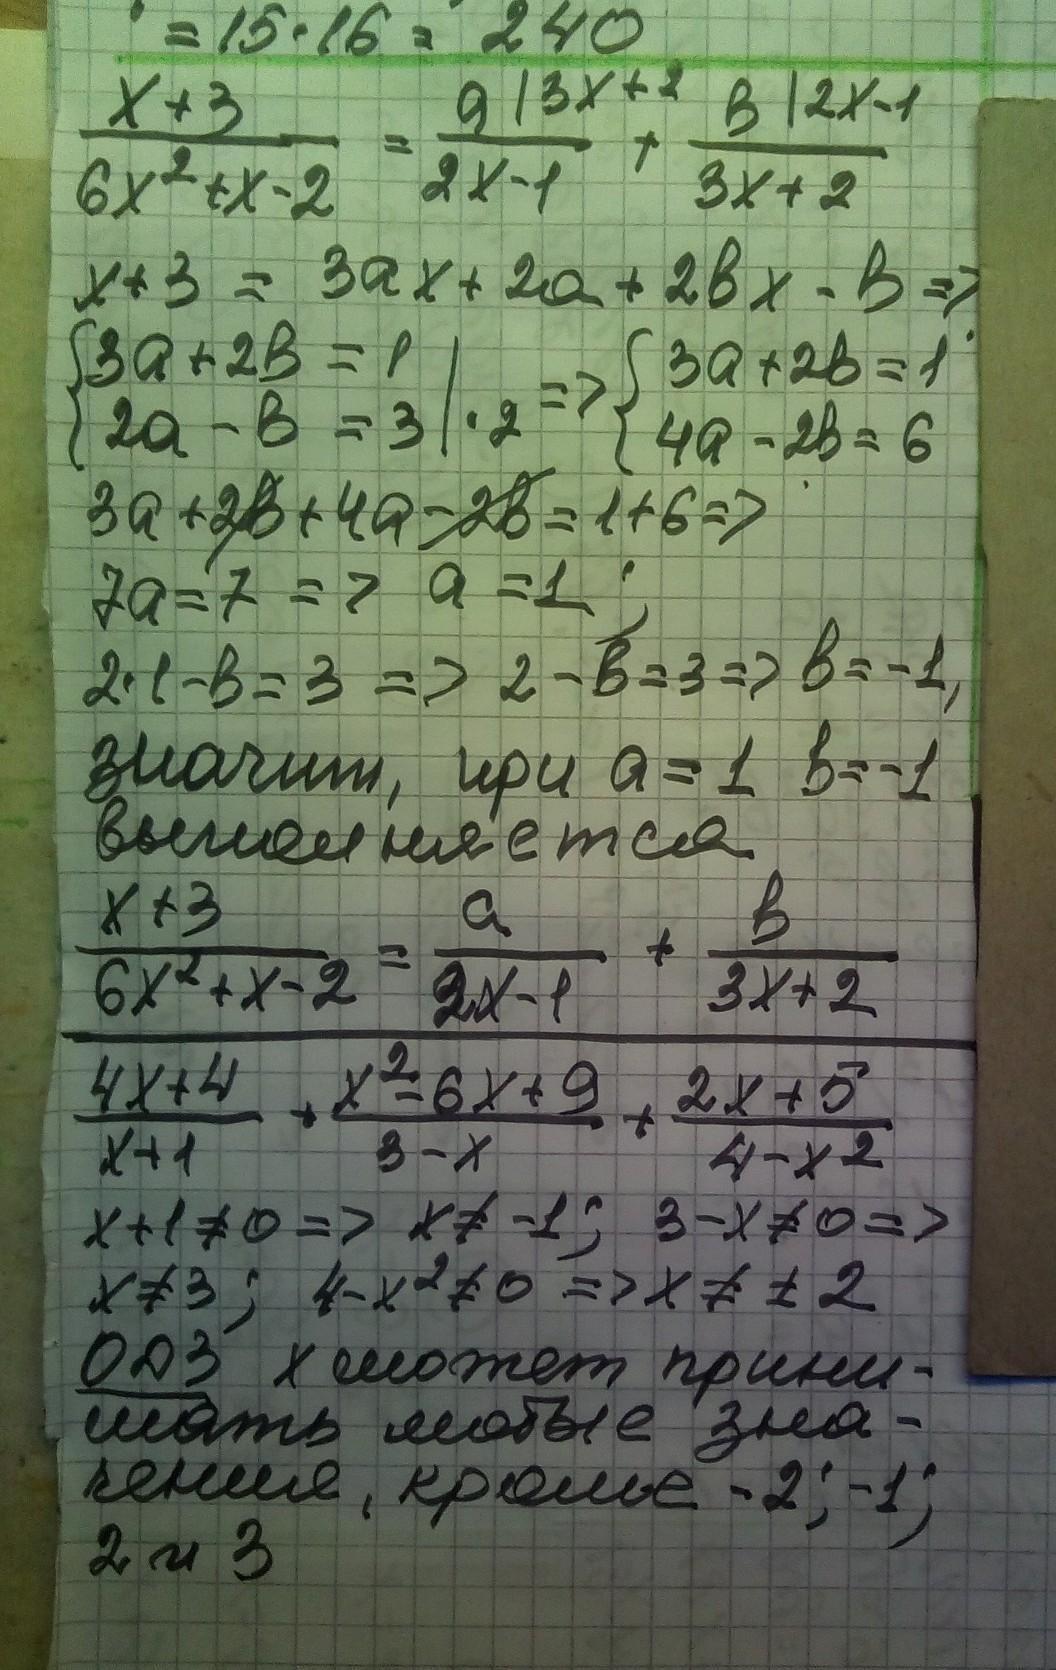 = 15·16 = 240
x+3 / 6x²+x-2 = a|3x+2 / 2x-1 + в|2x-1 / 3x+2
x+3 = 3ax+2a+2вx-в =>
{3a+2в=1 {2a-в=3|·2 => {3a+2в=1 {4a-2в=6
3a+2в+4a-2в=1+6=>
7a=7 => a=1;
2·1-в=3 => 2-в=3=> в=-1,
значит, при a=1 в=-1
выполняется
x+3 / 6x²+x-2 = a / 2x-1 + в / 3x+2
4x+4 / x+1 + x²-6x+9 / 3-x + 2x+5 / 4-x²
x+1≠0 => x≠-1; 3-x≠0 =>
x≠3; 4-x²≠0 => x≠±2
ОДЗ x может прини-
мать любые зна-
чения, кроме -2; -1;
2 и 3